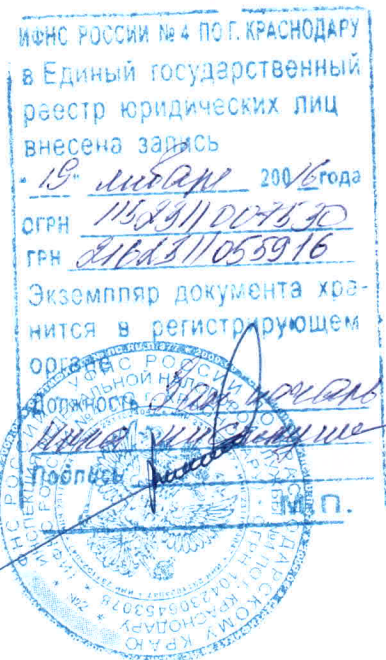 ИФНС РОССИИ № 4 ПО Г. КРАСНОДАРУ
в Единый государственный
реестр юридических лиц
внесена запись
"19" января 20016 года
ОГРН 1152311007530
ГРН 2162311055916
Экземпляр документа хра-
нится в регистрирующем
органе
Должность Зам начальн
Подпись
М.П.
КРАСНОДАРУ